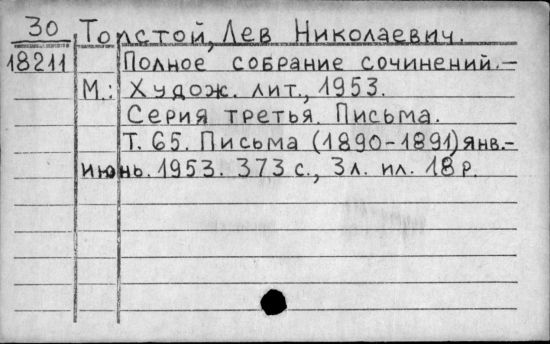 30 Толстой, Лев Николаевич.
18211 Полное собрание сочинений.—
М.: Худож. лит., 1953.
Серия третья. Письма.
Т. 65. Письма (1890-1891) янв.-
июнь. 1953. 373 с., 3л. ил. 18 р.